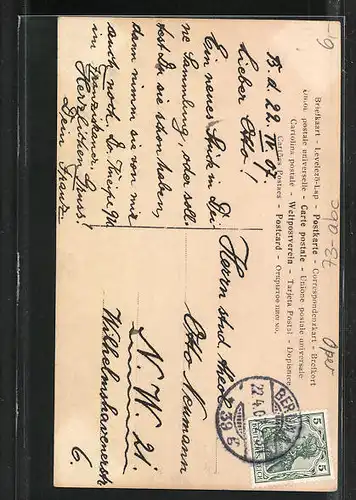 Briefkaart - Levelező-Lap - Postkarte - Correspondenzkart - Brefkort
Union postale universelle - Carte postale - Unione postale universale
Cartolina postale - Weltpostverein - Tarjeta Postal - Dopisnice
Cartões Postaes - Postcard -
B. d. 22. IV 07.
Lieber Otto!
Ein neues Lied in Dei
ne Sammlung, oder soll-
test Du sie schon haben,
dann nimm sie von mir
auch noch.
im Franziskaner.
Herzlichen Gruss!
Dein Franz
Herrn stud theol
Otto Neumann
N.W. 21.
Wilhelmshavenerstr
6.
BERLIN
22.4.0
39 E
5
5
Oper